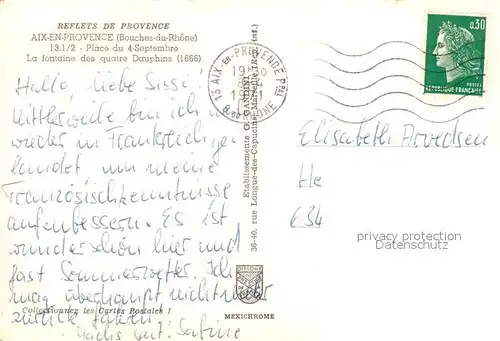 REFLETS DE PROVENCE
AIX-EN-PROVENCE (Bouches-du-Rhône)
13.1/2 - Place du 4-Septembre
La fontaine des quatre Dauphins (1666)
Hallo liebe Sissi!
Mittlerweile bin ich
wieder in Frankreich ge-
landet um meine
Französischkenntnisse
aufenbessern. Es ist
wunderschön hier und
fast Sommerwetter. Ich
mag überhaupt nicht mehr
zurück fahren!
Sabine
Collectionnez les Cartes Postales !
Etablissements O. GANDINI
36-40, rue Longue-des-Capucins - Marseille
MEXICHROME
13 AIX-EN-PROVENCE Ppal
B. DU RHONE
0,30
REPUBLIQUE FRANÇAISE
Elisabeth Arvedsen
He
634
privacy protection
Datenschutz